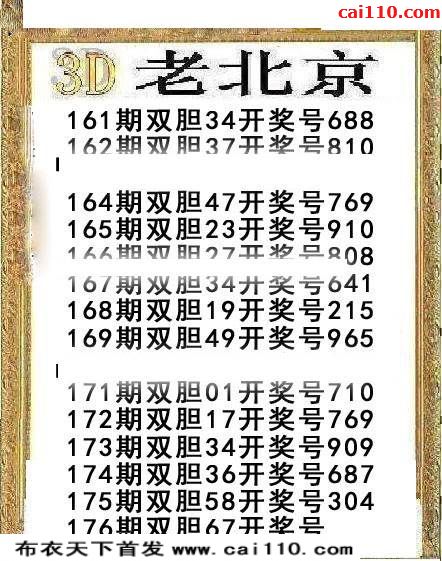 cai110.com
3D 老北京
161期双胆34开奖号688
162期双胆37开奖号810
164期双胆47开奖号769
165期双胆23开奖号910
166期双胆27开奖号808
167期双胆34开奖号641
168期双胆19开奖号215
169期双胆49开奖号965
171期双胆01开奖号710
172期双胆17开奖号769
173期双胆34开奖号909
174期双胆36开奖号687
175期双胆58开奖号304
176期双胆67开奖号
布衣天下首发 www.cai110.com